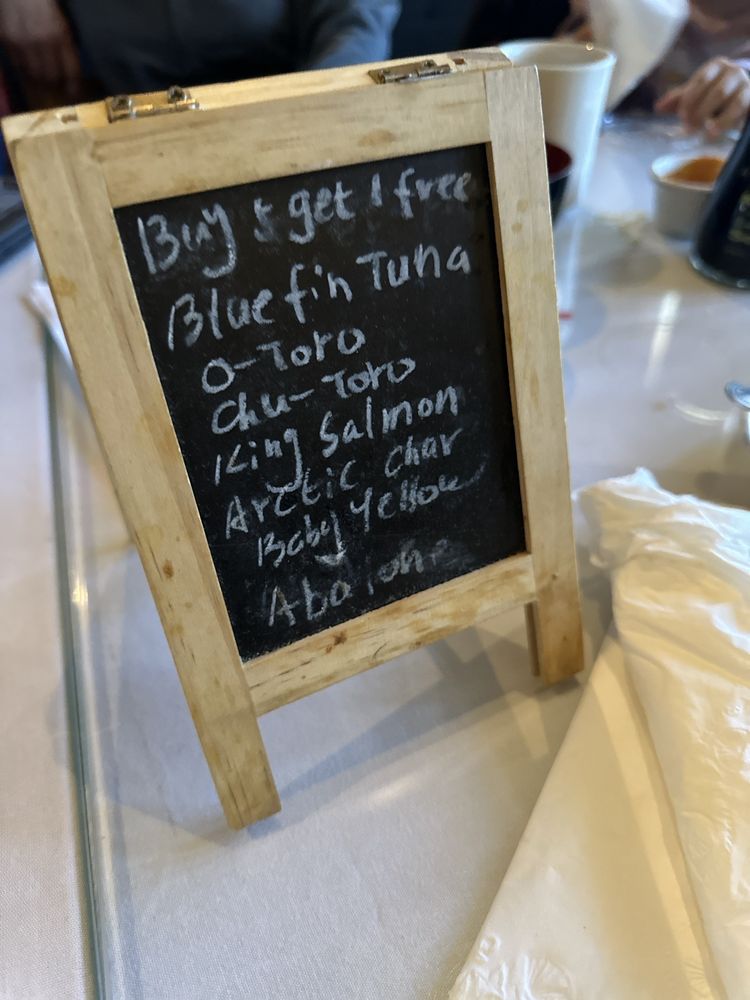 Buy 5 get 1 free
Blue fin Tuna
O-Toro
Chu-Toro
King Salmon
Arctic Char
Baby Yellow
Abalone